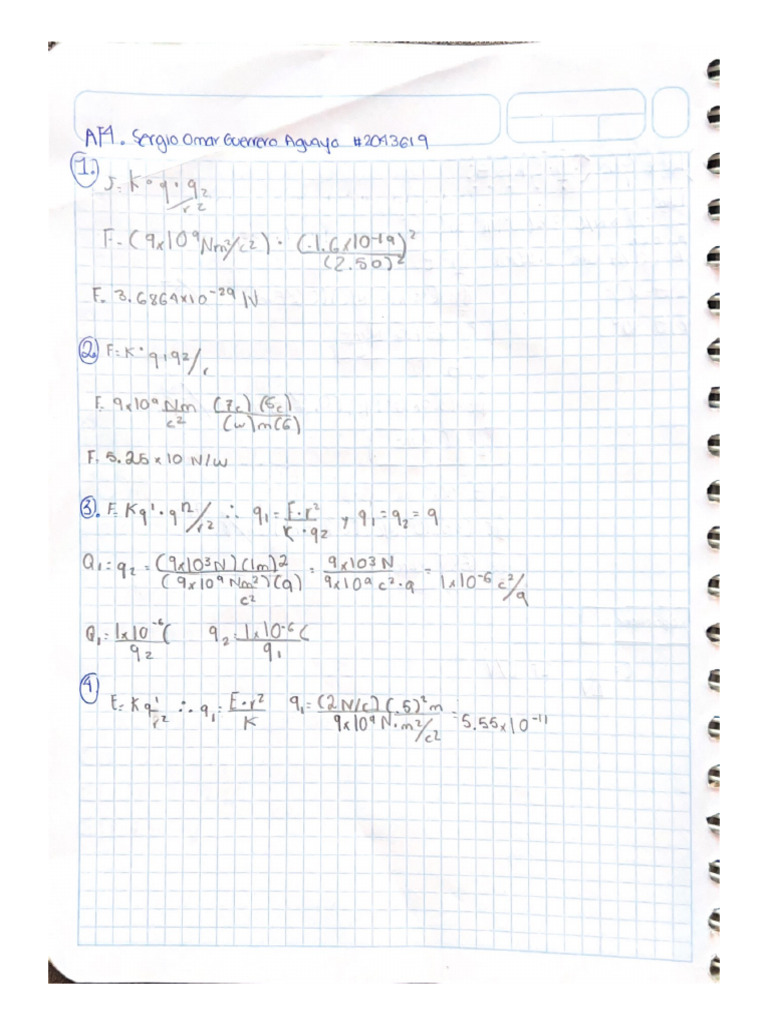 AF1. Sergio Omar Guerrero Aguayo #2043619
1. F= K • q • q2/r2
F= (9x10⁹ Nm²/c²) · (-1.6x10⁻¹⁹)²/(2.50)²
F= 3.6864x10⁻²⁹ N
2. F= K • q1q2/r
F= 9x10⁹ Nm/c² (7c)(5c)/(w)m(6)
F= 5.25 x 10 N/w
3. F= Kq1 • q2/r2 ∴ q1 = F•r²/K•q2 y q1 = q2 = q
Q1 = q2 = (9x10³N)(1m)2/(9x10⁹ Nm²/c²)(q) = 9x103N/9x10⁹c²•q = 1x10⁻⁶ c²/q
Q1 = 1x10⁻⁶C/q2 q2 = 1x10⁻⁶C/q1
4 E= K q1/r2 ∴ q1 = E•r²/K q1 = (2N/c)(.5)²m/9x10⁹ N•m²/c² = 5.55x10⁻¹¹